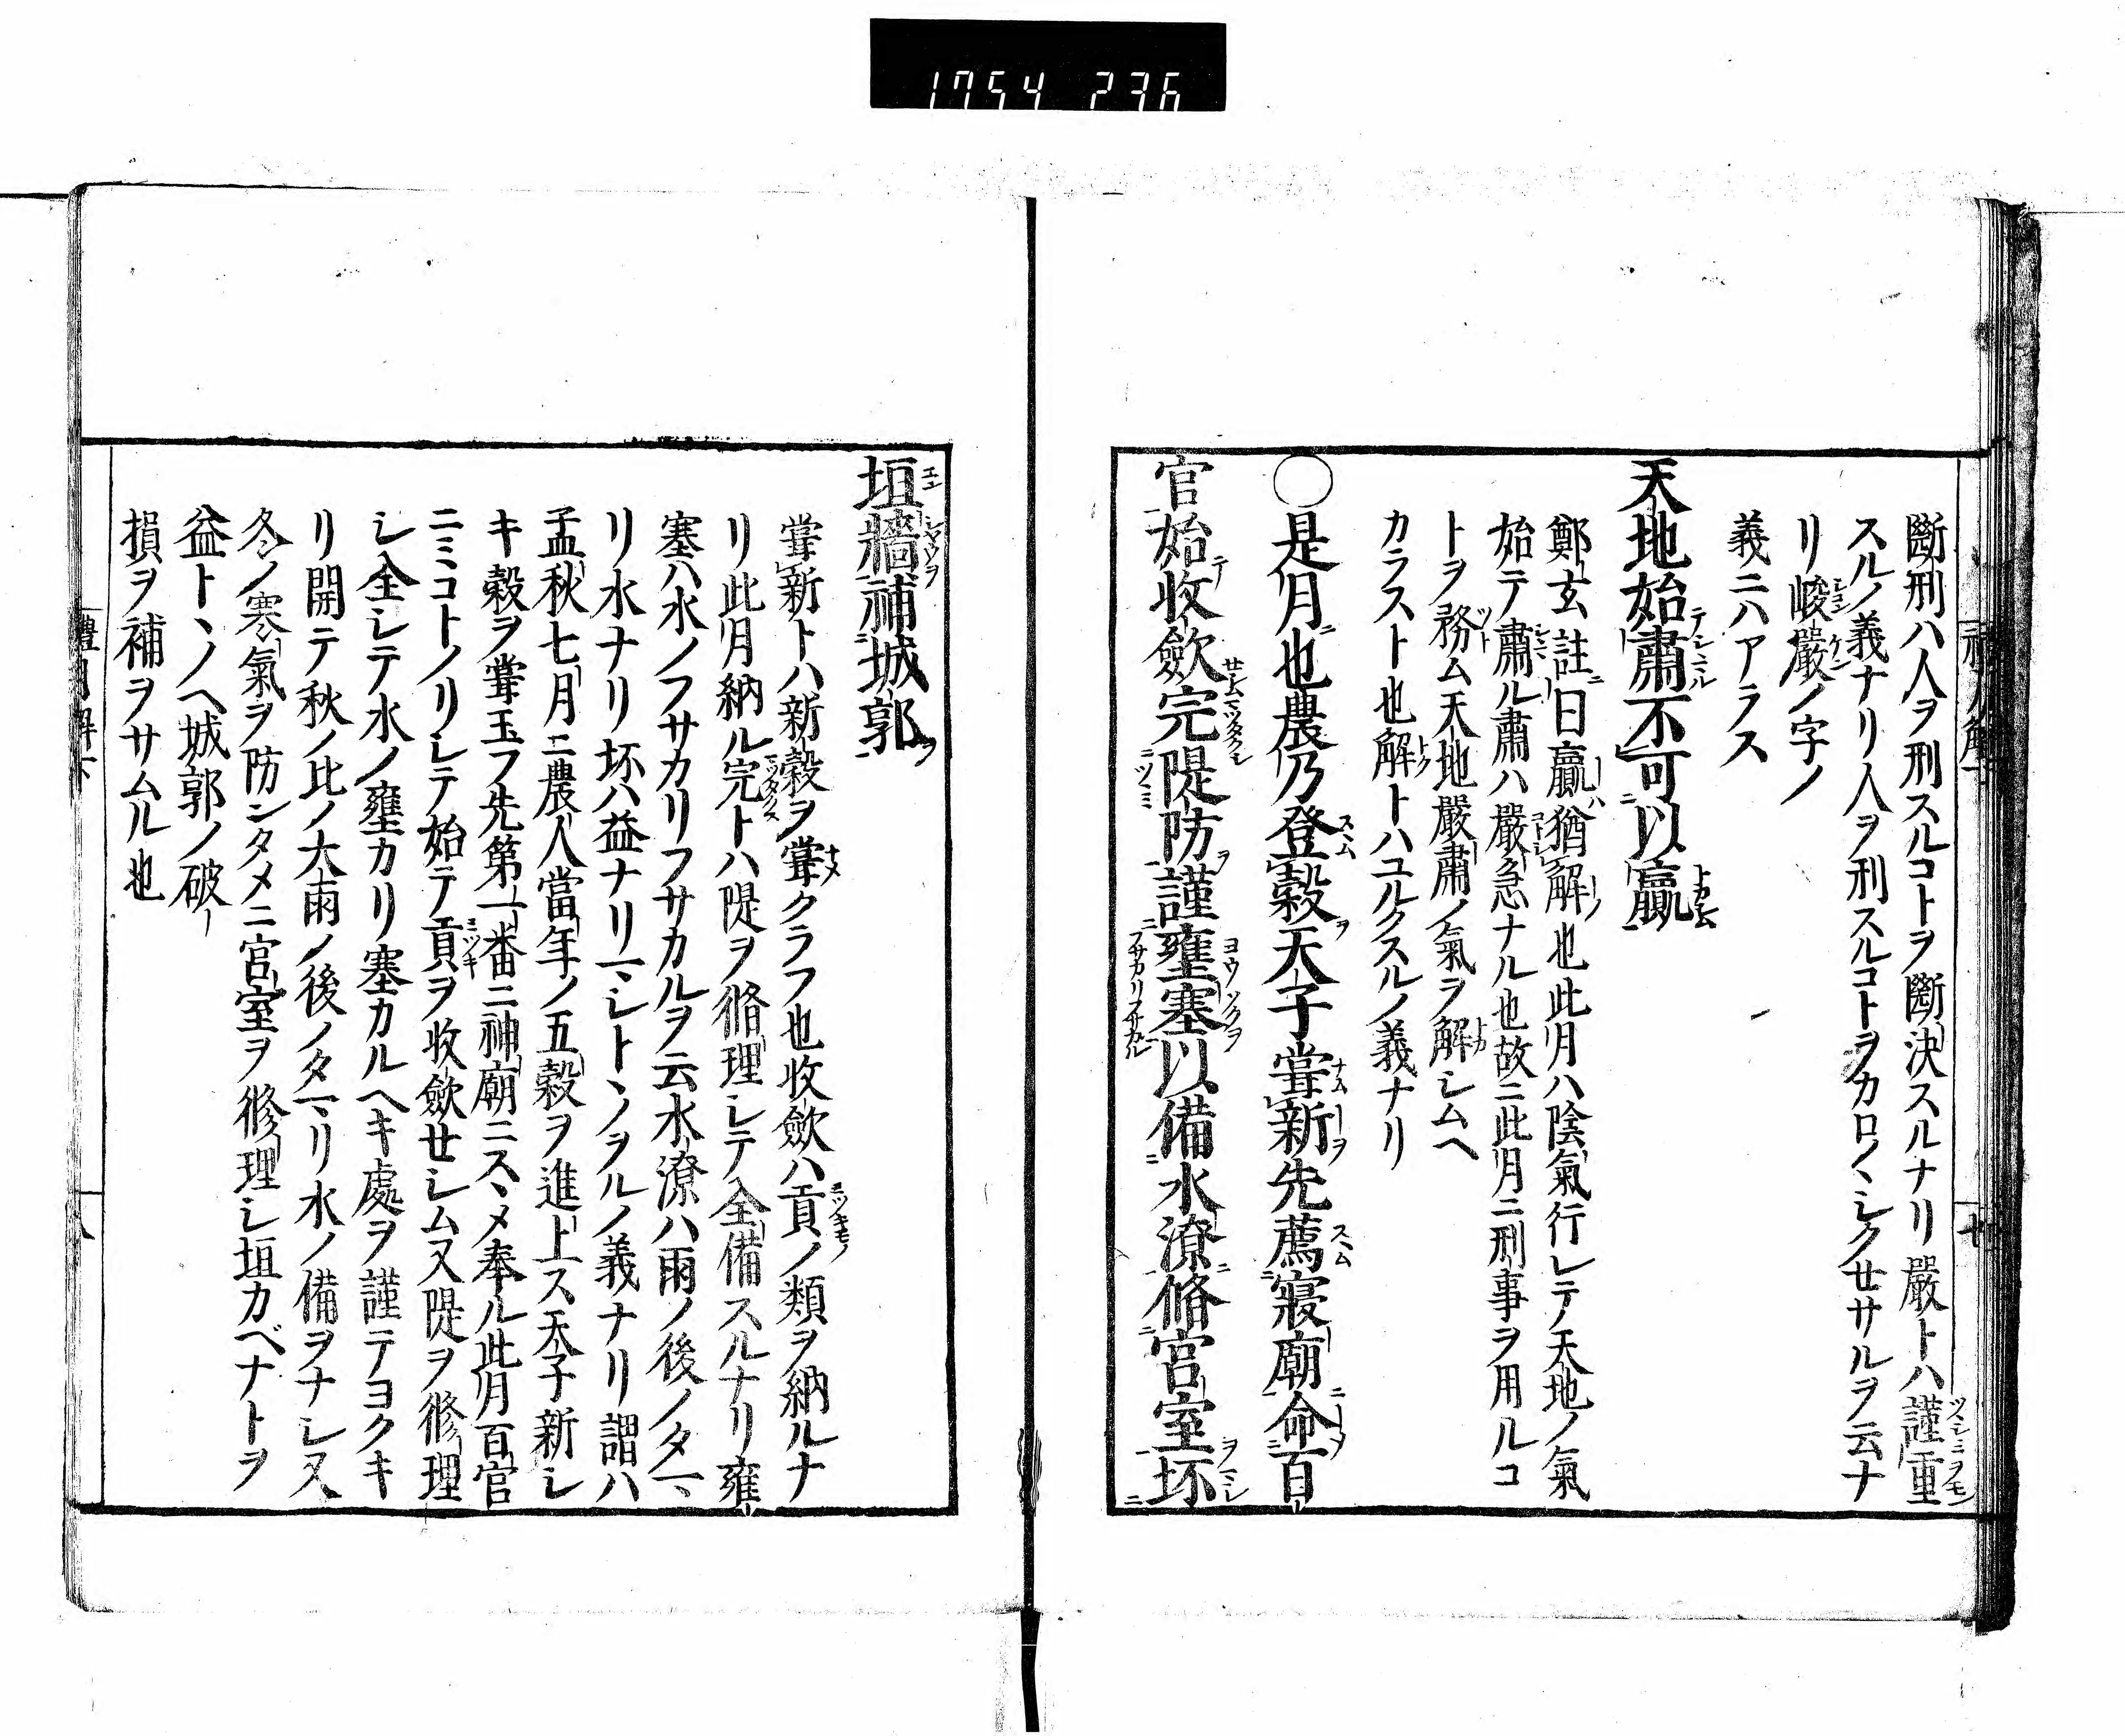 1754 236
斷刑ハ人ヲ刑スルコトヲ斷決スルナリ嚴トハ謹重
スルノ義ナリ人ヲ刑スルコトヲカロ〱シクセサルヲ云ナ
リ峻嚴ノ字ノ
義ニハアラス
天地始肅不可以贏
鄭玄註曰贏猶解也此月ハ陰氣行レテ天地ノ氣
始テ肅ル肅ハ嚴急ナル也故ニ此月ニ刑事ヲ用ルコ
トヲ務ム天地嚴肅ノ氣ヲ解シムヘ
カラスト也解トハユルクスルノ義ナリ
○是月也農乃登穀天子甞新先薦寢廟命百
官始收斂完隄防謹壅塞以備水潦脩宮室坏
垣牆補城郭
甞新トハ新穀ヲ甞クラフ也收斂ハ貢ノ類ヲ納ルナ
リ此月納ル完トハ隄ヲ脩理シテ全備スルナリ雍
塞ハ水ノフサカリフサカルヲ云水潦ハ雨ノ後ノタマ
リ水ナリ坏ハ益ナリマシトヽノヲルノ義ナリ謂ハ
孟秋七月ニ農人當年ノ五穀ヲ進上ス天子新シ
キ穀ヲ甞玉フ先第一番ニ神廟ニスヽメ奉ル此月百官
ニミコトノリシテ始テ貢ヲ收斂セシム又隄ヲ修理
シ全シテ水ノ壅カリ塞カルヘキ處ヲ謹テヨクキ
リ開テ秋ノ比ノ大雨ノ後ノタマリ水ノ備ヲナシ又
冬ノ寒氣ヲ防ンタメニ宮室ヲ修理シ垣カベナトヲ
益トヽノヘ城郭ノ破
損ヲ補ヲサムル也